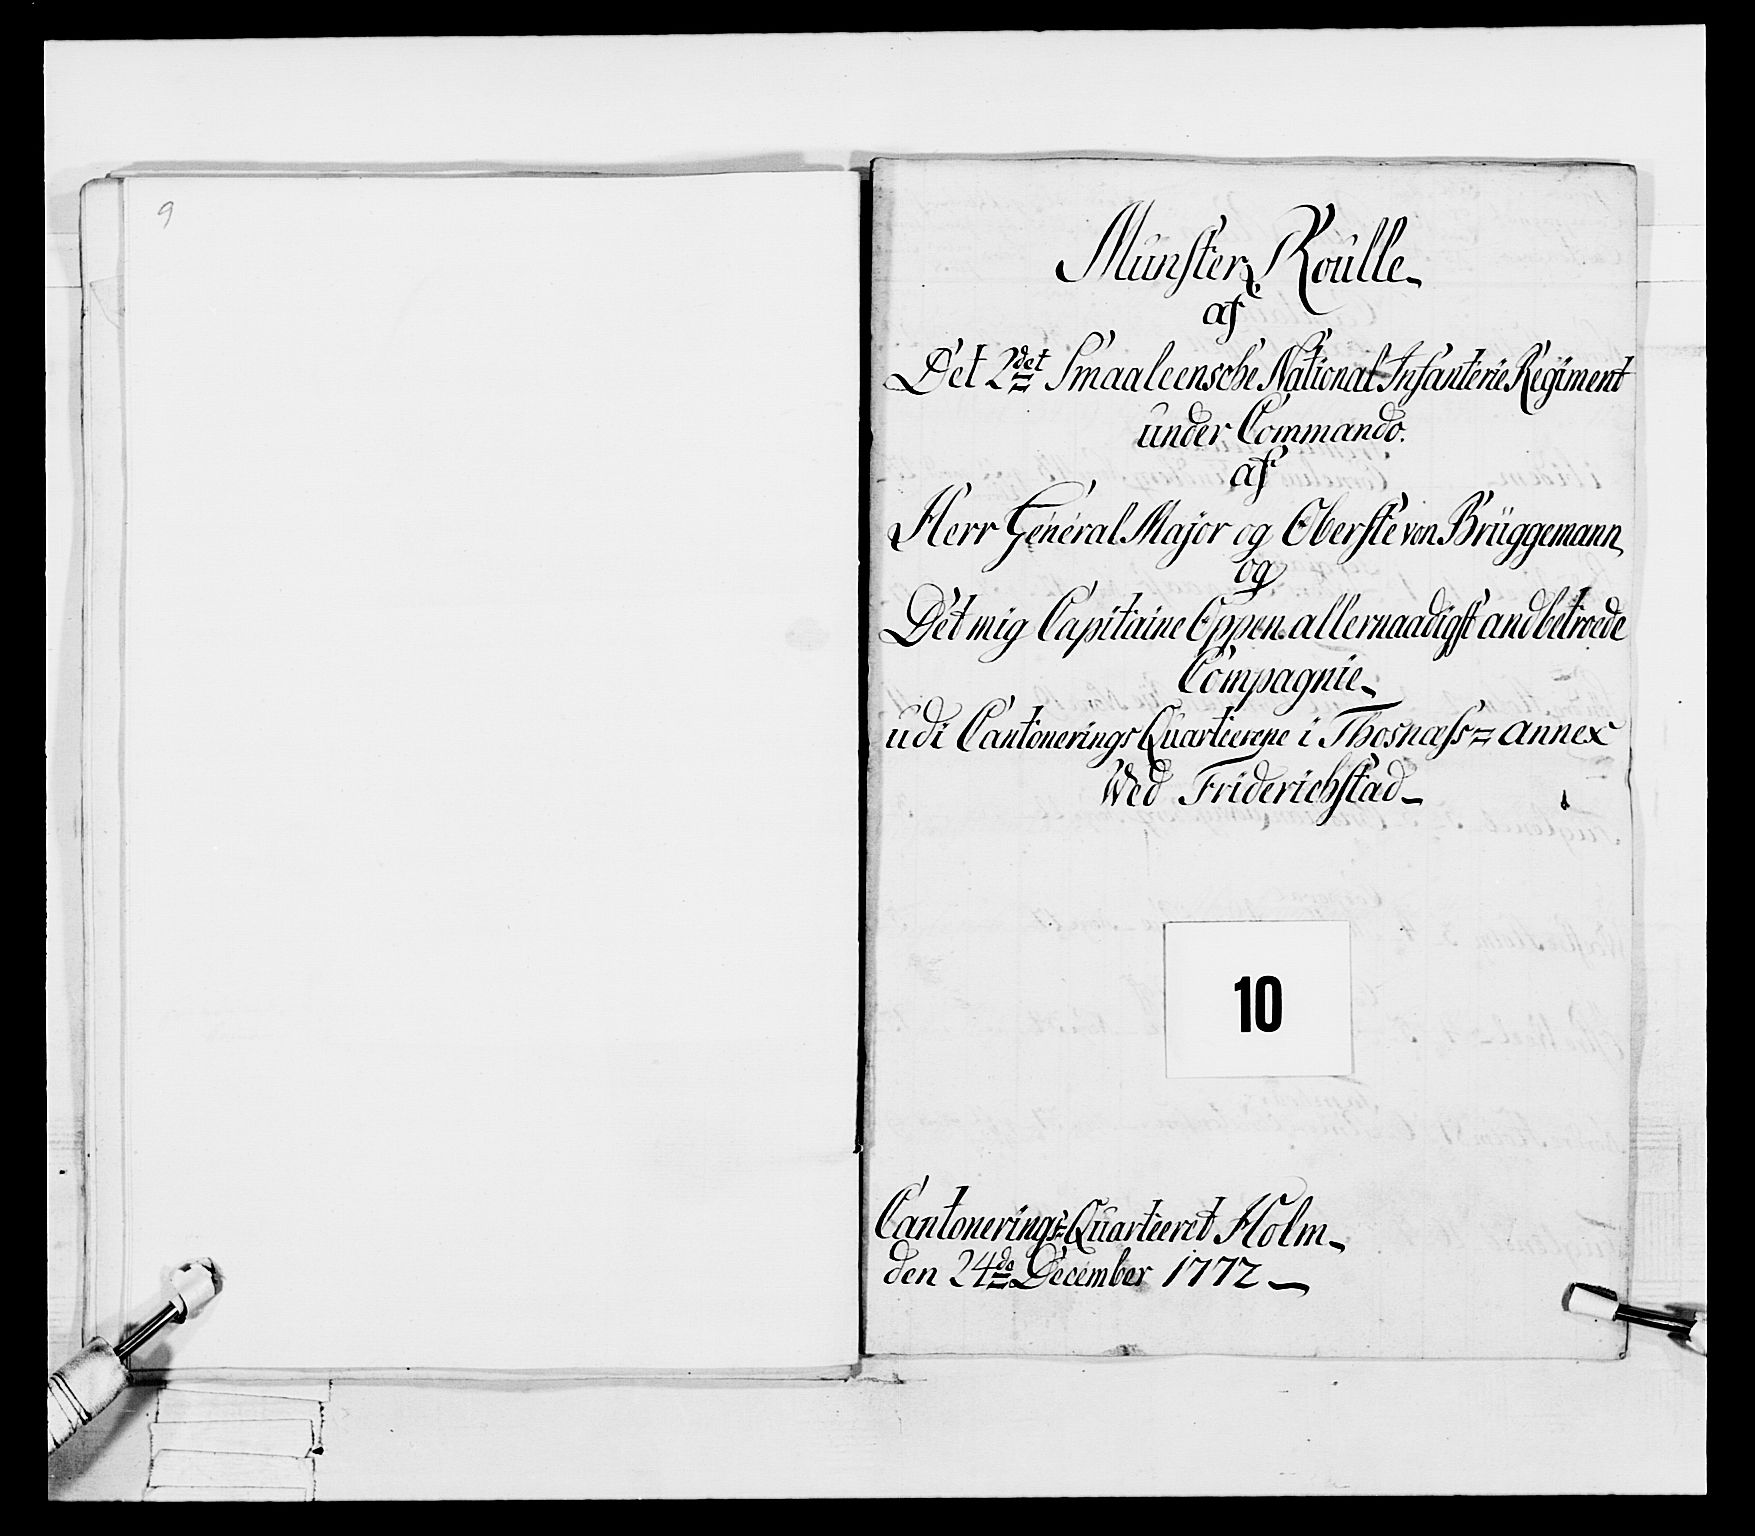 9
Munster Roulle
af
Det 2det Smaaleensche National Infanterie Regiment
under Commando.
af
Herr General Major og Oberste von Brüggemann
og
Det mig Capitaine Eppen allernaadigst andbetroede
Compagnie
udi Cantonerings Quarteerene i Thosnæss = annex
Wed Friderichstad
10
Cantonerings-Quarteeret Holm
den 24de December 1772